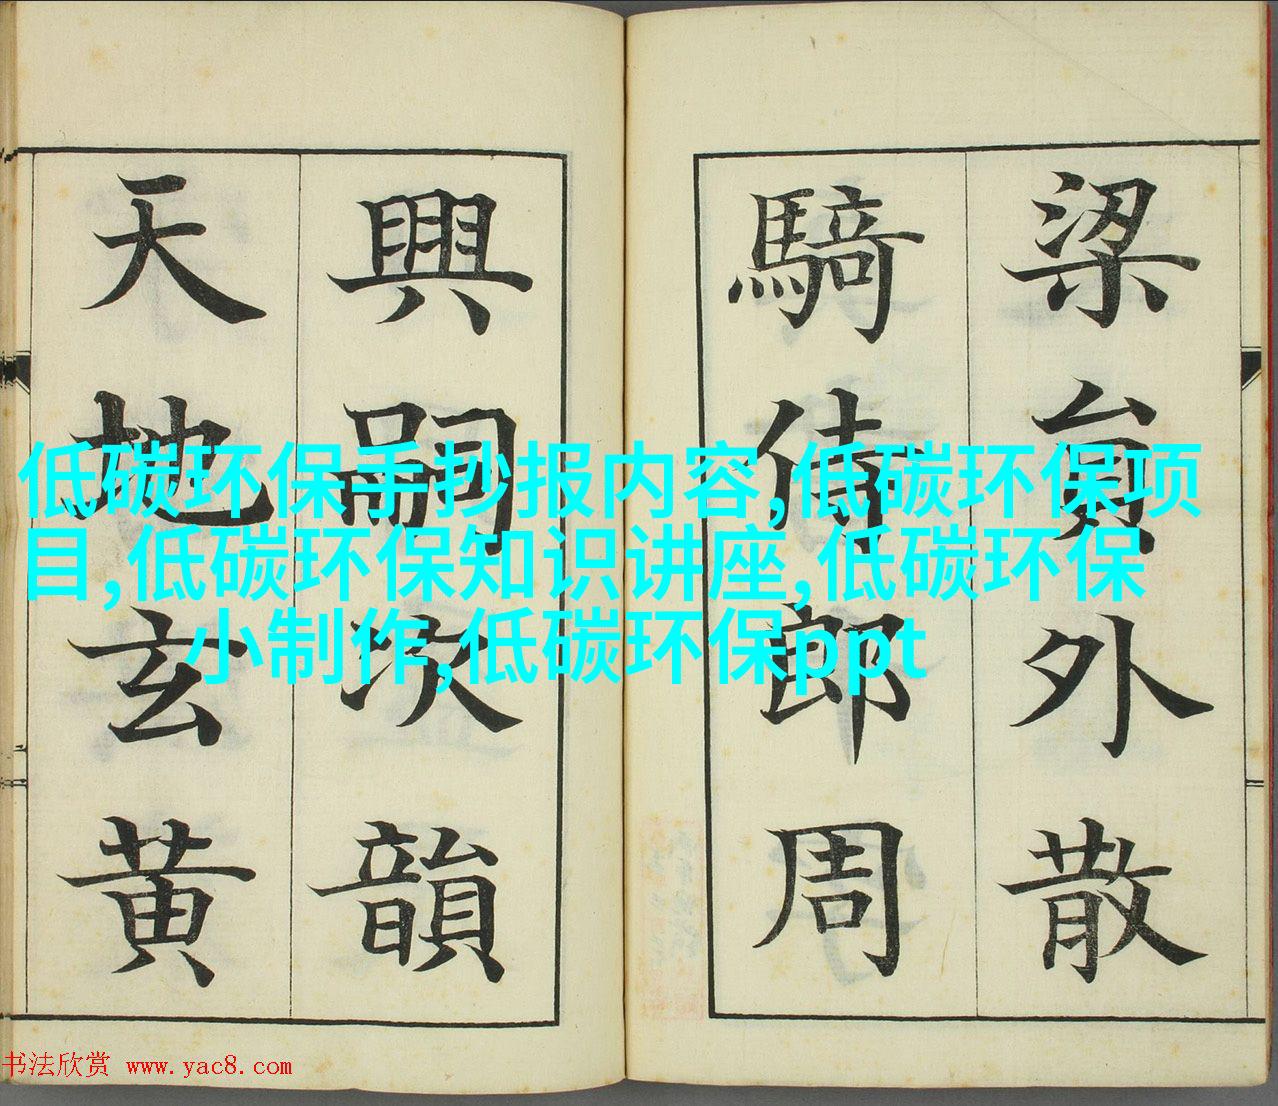 梁貟外散
騎侍郎周
興嗣次韻
天地玄黄
低碳环保手抄报内容,低碳环保项
目,低碳环保知识讲座,低碳环保
小制作,低碳环保ppt
书法欣赏 www.yac8.com